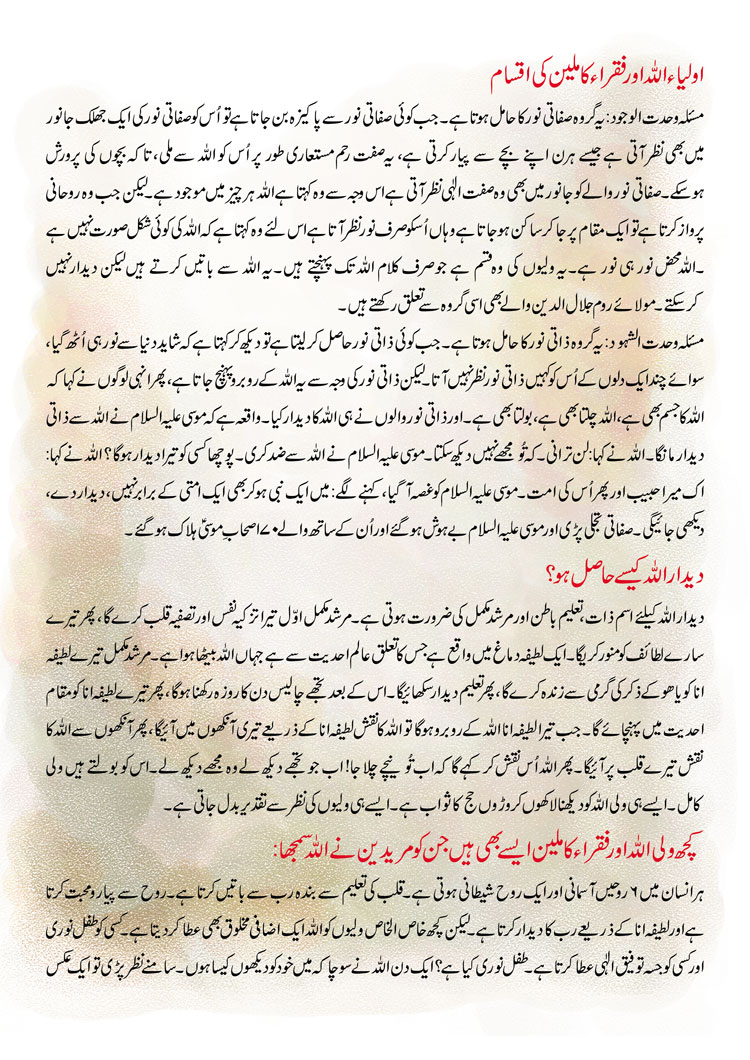 اولیاء اللہ اور فقراء کاملین کی اقسام
مسئلہ وحدت الوجود: یہ گروہ صفاتی نور کا حامل ہوتا ہے۔ جب کوئی صفاتی نور سے پاکیزہ بن جاتا ہے تو اُس کو صفاتی نور کی ایک جھلک جانور
میں بھی نظر آتی ہے جیسے ہرن اپنے بچے سے پیار کرتی ہے، یہ صفت رحم مستعاری طور پر اُس کو اللہ سے ملی، تاکہ بچوں کی پرورش
ہو سکے۔ صفاتی نور والے کو جانور میں بھی وہ صفت الٰہی نظر آتی ہے اس وجہ سے وہ کہتا ہے اللہ ہر چیز میں موجود ہے۔ لیکن جب وہ روحانی
پرواز کرتا ہے تو ایک مقام پر جا کر ساکن ہو جاتا ہے وہاں اُسکو صرف نور نظر آتا ہے اس لئے وہ کہتا ہے کہ اللہ کی کوئی شکل صورت نہیں ہے
۔ اللہ محض نور ہی نور ہے۔ یہ ولیوں کی وہ قسم ہے جو صرف کلام اللہ تک پہنچتے ہیں۔ یہ اللہ سے باتیں کرتے ہیں لیکن دیدار نہیں
کر سکتے۔ مولائے روم جلال الدین والے بھی اسی گروہ سے تعلق رکھتے ہیں۔
مسئلہ وحدت الشہود: یہ گروہ ذاتی نور کا حامل ہوتا ہے۔ جب کوئی ذاتی نور حاصل کر لیتا ہے تو دیکھ کر کہتا ہے کہ شاید دنیا سے نور ہی اُٹھ گیا،
سوائے چند ایک دلوں کے اُس کو کہیں ذاتی نور نظر نہیں آتا۔ لیکن ذاتی نور کی وجہ سے یہ اللہ کے روبرو پہنچ جاتا ہے، پھر انہی لوگوں نے کہا کہ
اللہ کا جسم بھی ہے، اللہ چلتا بھی ہے، بولتا بھی ہے۔ اور ذاتی نور والوں نے ہی اللہ کا دیدار کیا۔ واقعہ ہے کہ موسی علیہ السلام نے اللہ سے ذاتی
دیدار مانگا۔ اللہ نے کہا: لن ترانی۔ کہ تُو مجھے نہیں دیکھ سکتا۔ موسی علیہ السلام نے اللہ سے ضد کری۔ پوچھا کسی کو تیرا دیدار ہوگا؟ اللہ نے کہا:
اک میرا حبیب اور پھر اُس کی امت۔ موسی علیہ السلام کو غصہ آ گیا، کہنے لگے: میں ایک نبی ہو کر بھی ایک امتی کے برابر نہیں، دیدار دے،
دیکھی جائیگی۔ صفاتی تجلی پڑی اور موسی علیہ السلام بے ہوش ہو گئے اور اُن کے ساتھ والے ۷۰ اصحاب موسیٰ ہلاک ہو گئے۔
دیدار اللہ کیسے حاصل ہو؟
دیدار اللہ کیلئے اسم ذات، تعلیم باطن اور مرشد مکمل کی ضرورت ہوتی ہے۔ مرشد مکمل اوّل تیرا تزکیہ نفس اور تصفیہ قلب کرے گا، پھر تیرے
سارے لطائف کو منور کریگا۔ ایک لطیفہ دماغ میں واقع ہے جس کا تعلق عالم احدیت سے ہے جہاں اللہ بیٹھا ہوا ہے۔ مرشد مکمل تیرے لطیفہ
انا کو یاھو کے ذکر کی گرمی سے زندہ کرے گا، پھر تعلیم دیدار سکھائیگا۔ اس کے بعد تجھے چالیس دن کا روزہ رکھنا ہوگا، پھر تیرے لطیفہ انا کو مقام
احدیت میں پہنچائے گا۔ جب تیرا لطیفہ انا اللہ کے روبرو ہوگا تو اللہ کا نقش لطیفہ انا کے ذریعے تیری آنکھوں میں آئیگا، پھر آنکھوں سے اللہ کا
نقش تیرے قلب پر آئیگا۔ پھر اللہ اُس نقش کر کہے گا کہ اب تُو نیچے چلا جا! اب جو تجھے دیکھ لے وہ مجھے دیکھ لے۔ اس کو بولتے ہیں ولی
کامل۔ ایسے ہی ولی اللہ کو دیکھنا لاکھوں کروڑوں حج کا ثواب ہے۔ ایسے ہی ولیوں کی نظر سے تقدیر بدل جاتی ہے۔
کچھ ولی اللہ اور فقراء کاملین ایسے بھی ہیں جن کو مریدین نے اللہ سمجھا:
ہر انسان میں ۶ روحیں آسمانی اور ایک روح شیطانی ہوتی ہے۔ قلب کی تعلیم سے بندہ رب سے باتیں کرتا ہے۔ روح سے پیار و محبت کرتا
ہے اور لطیفہ انا کے ذریعے رب کا دیدار کرتا ہے۔ لیکن کچھ خاص الخاص ولیوں کو اللہ ایک اضافی مخلوق بھی عطا کر دیتا ہے۔ کسی کو طفل نوری
اور کسی کو جسہ توفیق الٰہی عطا کرتا ہے۔ طفل نوری کیا ہے؟ ایک دن اللہ نے سوچا کہ میں خود کو دیکھوں کیسا ہوں۔ سامنے نظر پڑی تو ایک عکس